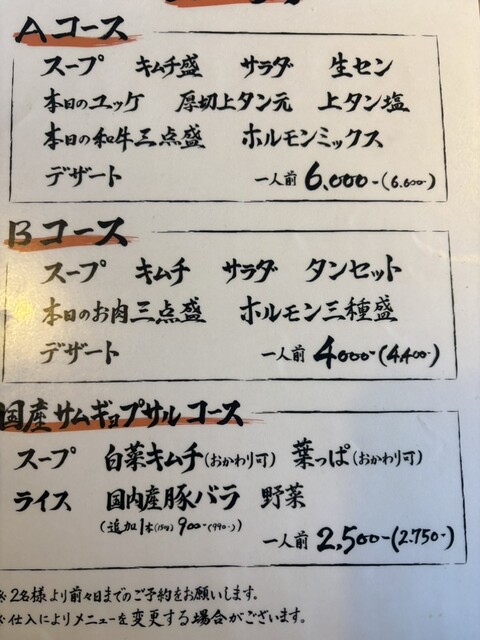 A コース
スープ キムチ盛 サラダ 生セン
本日のユッケ 厚切上タン元 上タン塩
本日の和牛三点盛 ホルモンミックス
デザート 一人前 6,000-(6.600-)
B コース
スープ キムチ サラダ タンセット
本日のお肉三点盛 ホルモン三種盛
デザート 一人前 4000-(4,400-)
国産サムギョプサルコース
スープ 白菜キムチ(おかわり可) 葉っぱ(おかわり可)
ライス 国内産豚バラ 野菜
(追加1本 900-(990-))
一人前 2,500-(2.750-)
※2名様より前々日までのご予約をお願いします。
※仕入によりメニューを変更する場合がございます。